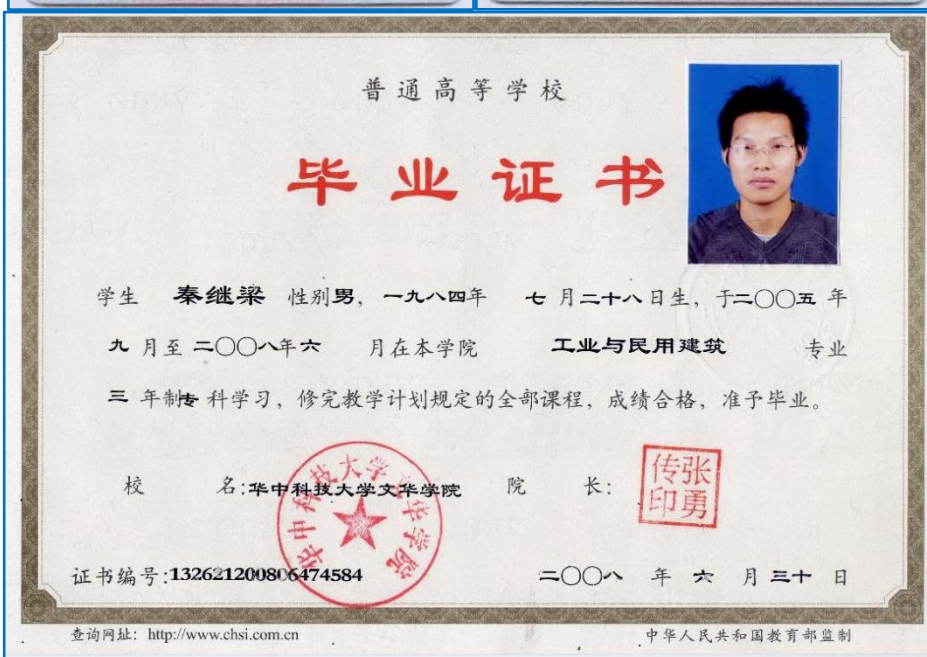 普通高等学校
毕业证书
学生 秦继梁 性别男，一九八四年 七月二十八日生，于二〇〇五年
九月至二〇〇八年六 月在本学院 工业与民用建筑 专业
三年制专科学习，修完教学计划规定的全部课程，成绩合格，准予毕业。
校 名：华中科技大学文华学院 院 长：
华中科技大学文华学院
张勇传印
证书编号：132621200806474584 二〇〇八年六月三十日
查询网址：http://www.chsi.com.cn 中华人民共和国教育部监制